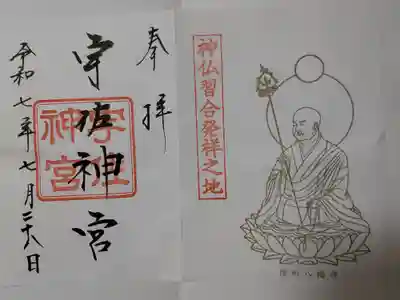 奉拝
宇佐神宮
宇佐
神宮
令和七年七月二十八日
神仏習合発祥之地
僧形八幡